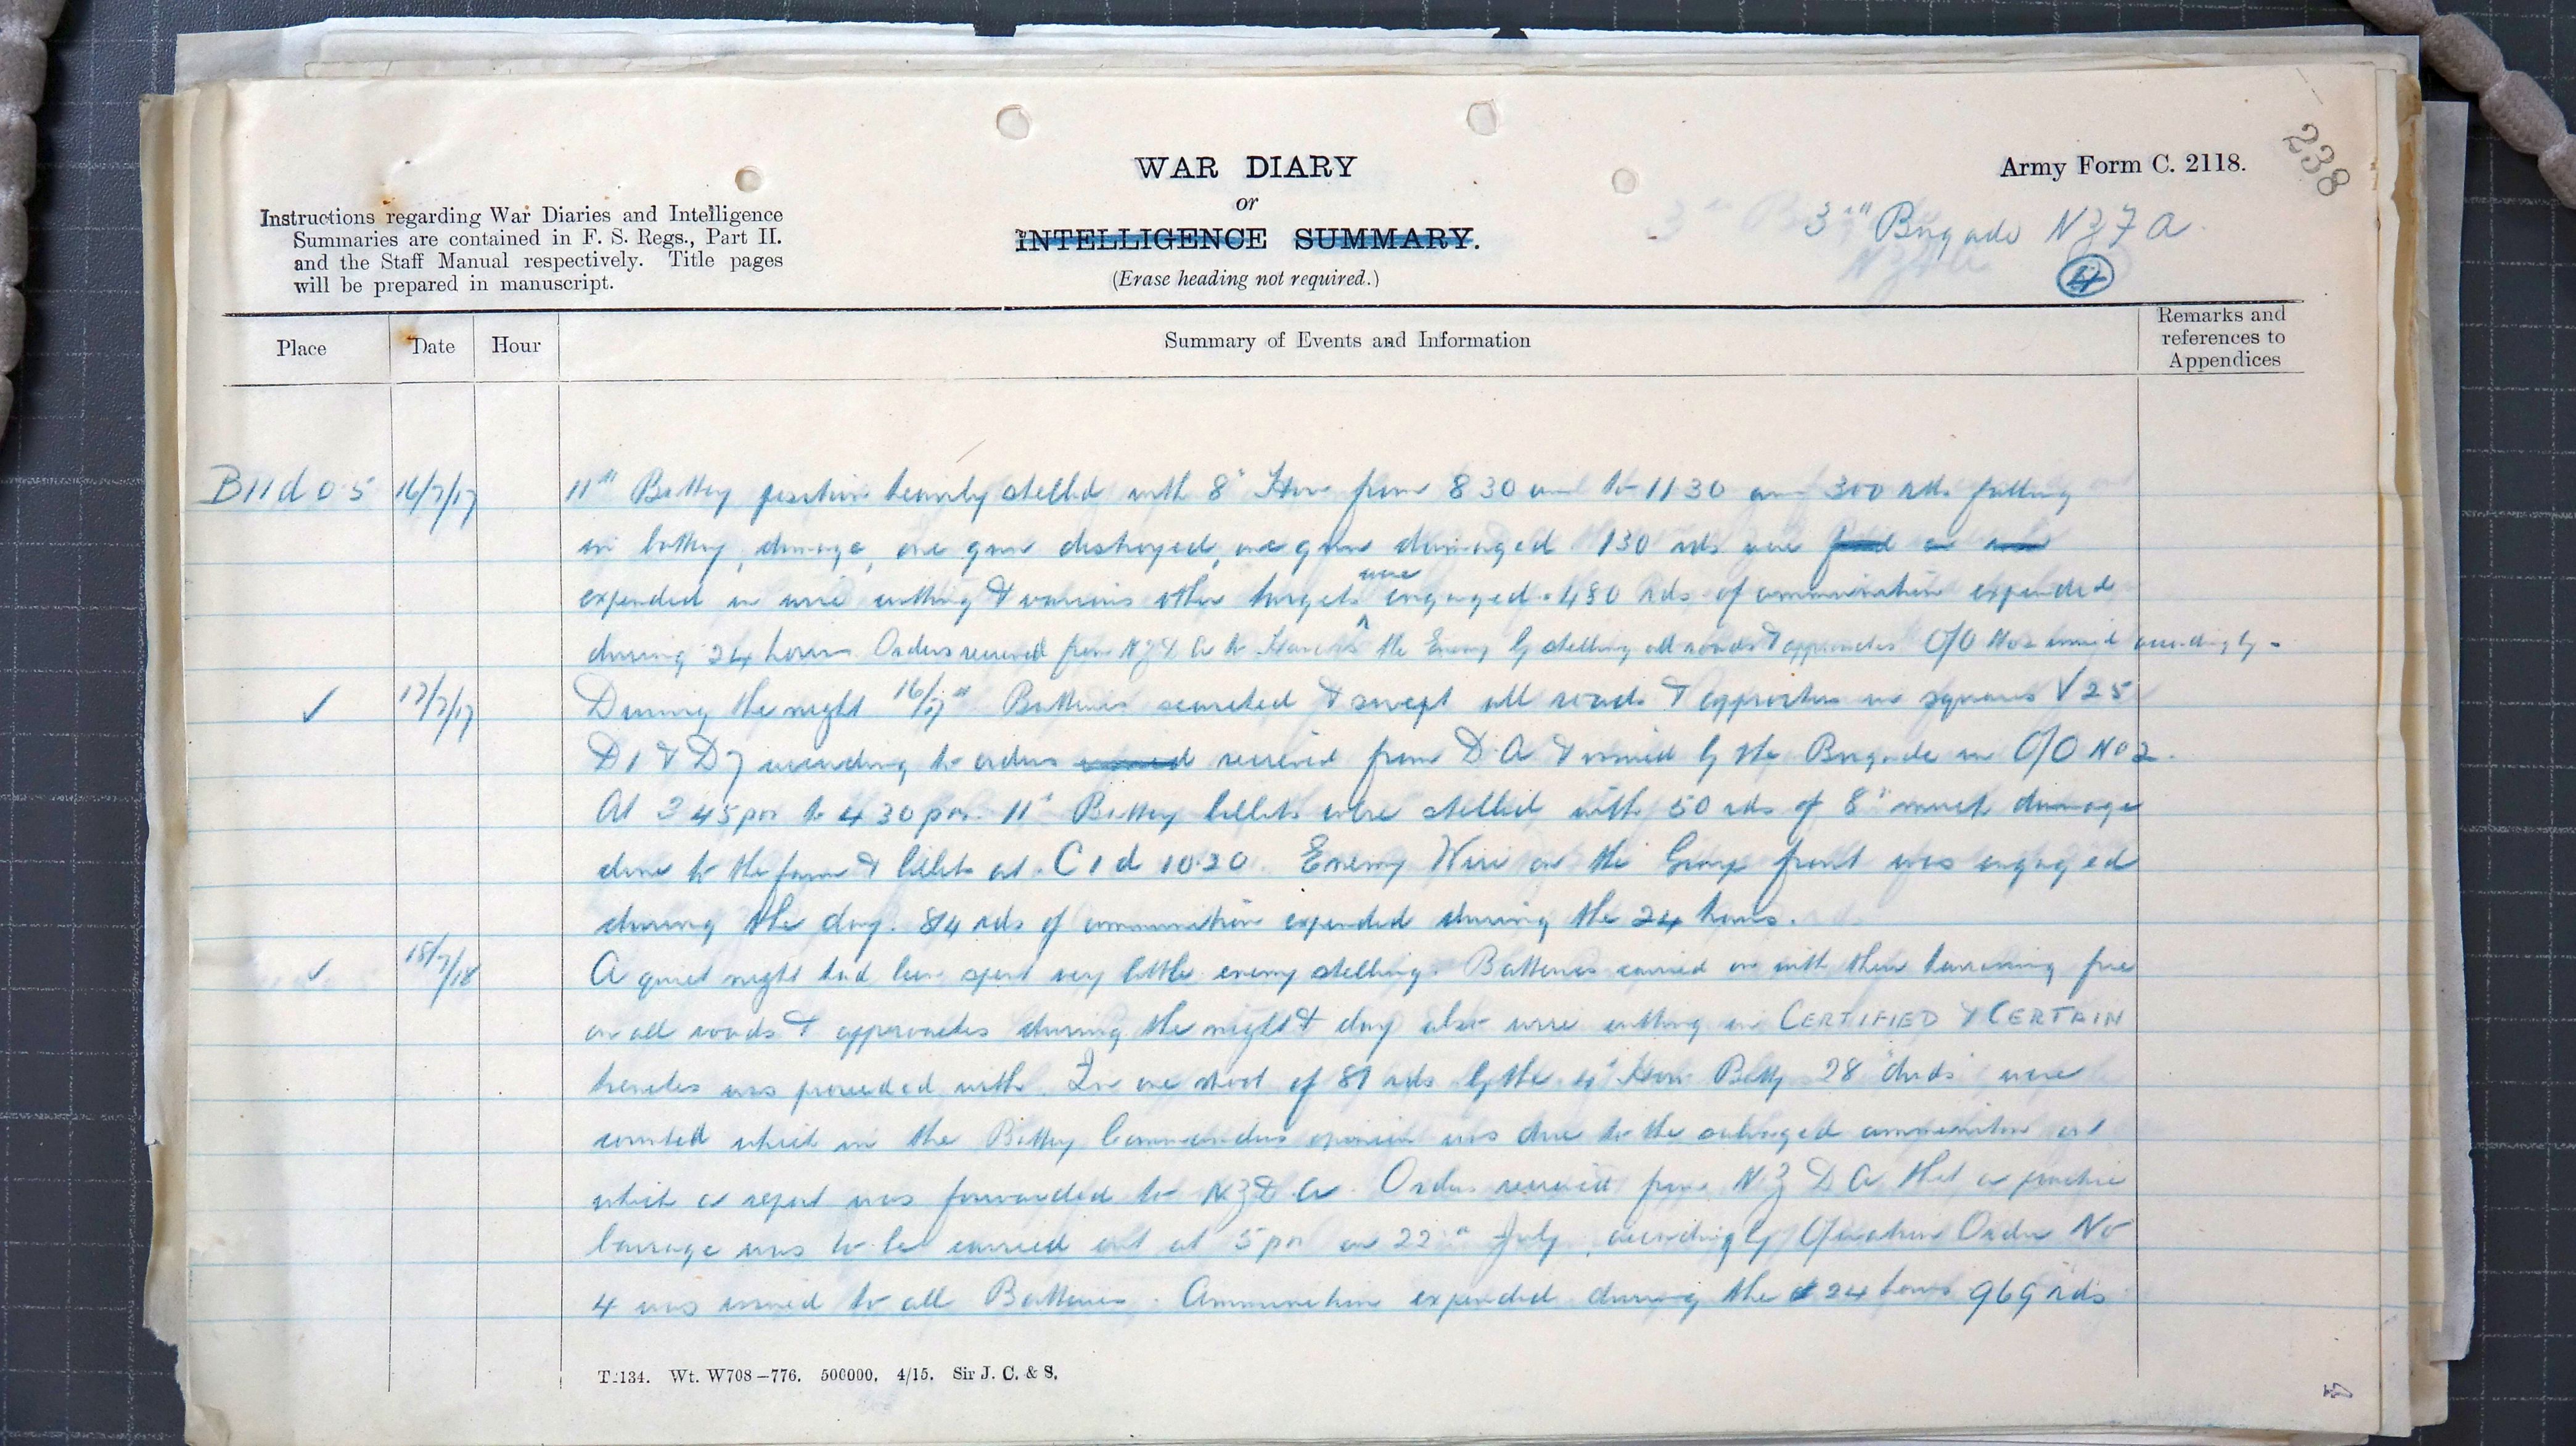 238
WAR DIARY
or
INTELLIGENCE SUMMARY.
(Erase heading not required.)
Army Form C. 2118.
3rd Brigade NZFA
4
Instructions regarding War Diaries and Intelligence
Summaries are contained in F. S. Regs., Part II.
and the Staff Manual respectively. Title pages
will be prepared in manuscript.
Place Date Hour Summary of Events and Information Remarks and references to Appendices
B11d 0.5 16/7/17 11th Battery position heavily shelled with 8" How from 8 30 am to 11 30 am 300 rds. falling
in battery, damage, one gun destroyed, one gun damaged 130 rds were
expended in wire cutting & various other targets were engaged. 480 rds of ammunition expended
during 24 hours Orders received from NZDA to Harass the Enemy by shelling all roads & approaches O/O No 2 issued accordingly.
✓ 17/7/17 During the night 16/17th Batteries searched & swept all roads & approaches in squares V25
D1 & D7 according to orders received from D.A & issued by the Brigade in O/O No 2.
At 3 45 pm to 4 30 pm. 11th Battery billets were shelled with 50 rds of 8" much damage
done to the farm & billets at C1d 10.20. Enemy Wire on the Group front was engaged
during the day. 814 rds of ammunition expended during the 24 hours.
✓ 18/7/18 A quiet night had been spent very little enemy shelling. Batteries carried on with their harassing fire
on all roads & approaches during the night & day also wire cutting in CERTIFIED & CERTAIN
trenches was proceeded with. In one shoot of 87 rds by the 4th How. Batty 28 "duds" were
counted which in the Battery Commanders opinion was due to the salvaged ammunition on
which a report was forwarded to NZDA. Orders received from NZDA that a practice
barrage was to be carried out at 5 pm on 22nd July, accordingly Operation Order No
4 was issued to all Batteries. Ammunition expended during the 24 hours 969 rds
T.134. Wt. W708—776. 500000. 4/15. Sir J. C. & S.